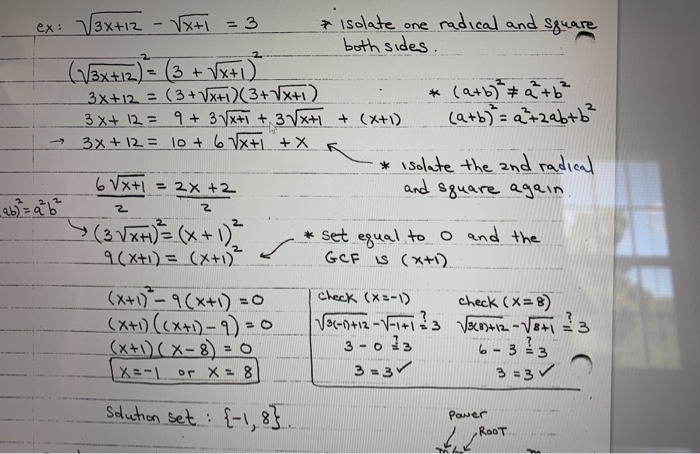 ex: √3x+12 - √x+1 = 3 * isolate one radical and square
both sides.
(√3x+12)² = (3 + √x+1)²
3x+12 = (3+√x+1)(3+√x+1) * (a+b)² ≠ a²+b²
3x+12 = 9 + 3√x+1 + 3√x+1 + (x+1) (a+b)² = a²+2ab+b²
→ 3x+12 = 10 + 6√x+1 + x
* isolate the 2nd radical
6√x+1 = 2x+2 and square again.
2 2
ab)² = a²b²
(3√x+1)² = (x+1)² * set equal to 0 and the
9(x+1) = (x+1)² GCF is (x+1)
(x+1)² - 9(x+1) = 0 check (x=-1) check (x=8)
(x+1)((x+1)-9) = 0 √3(-1)+12 - √-1+1 ≟ 3 √3(8)+12 - √8+1 ≟ 3
(x+1)(x-8) = 0 3 - 0 ≟ 3 6 - 3 ≟ 3
x=-1 or x=8 3 = 3 ✓ 3 = 3 ✓
Solution set : {-1, 8}.
Power
ROOT